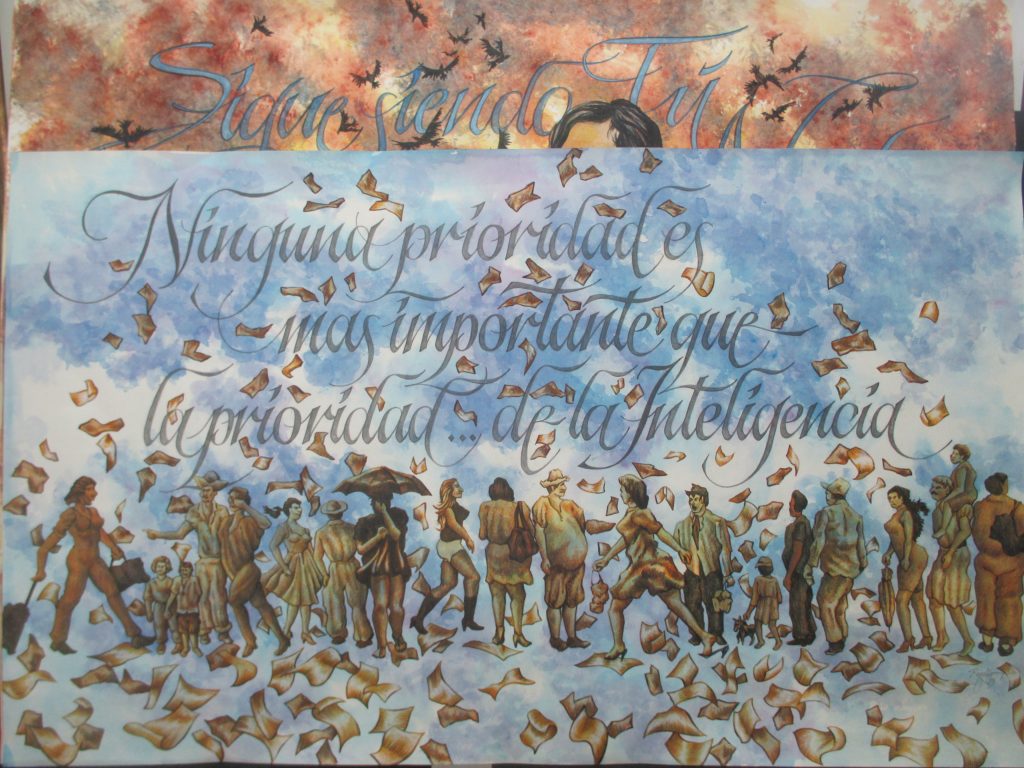 Sigue siendo Tú
Ninguna prioridad es
mas importante que
la prioridad... de la Inteligencia